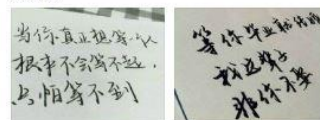 当你真正想等个人
根本不会等不起,
只怕等不到
等你毕业就结婚
我这辈子
非你不娶